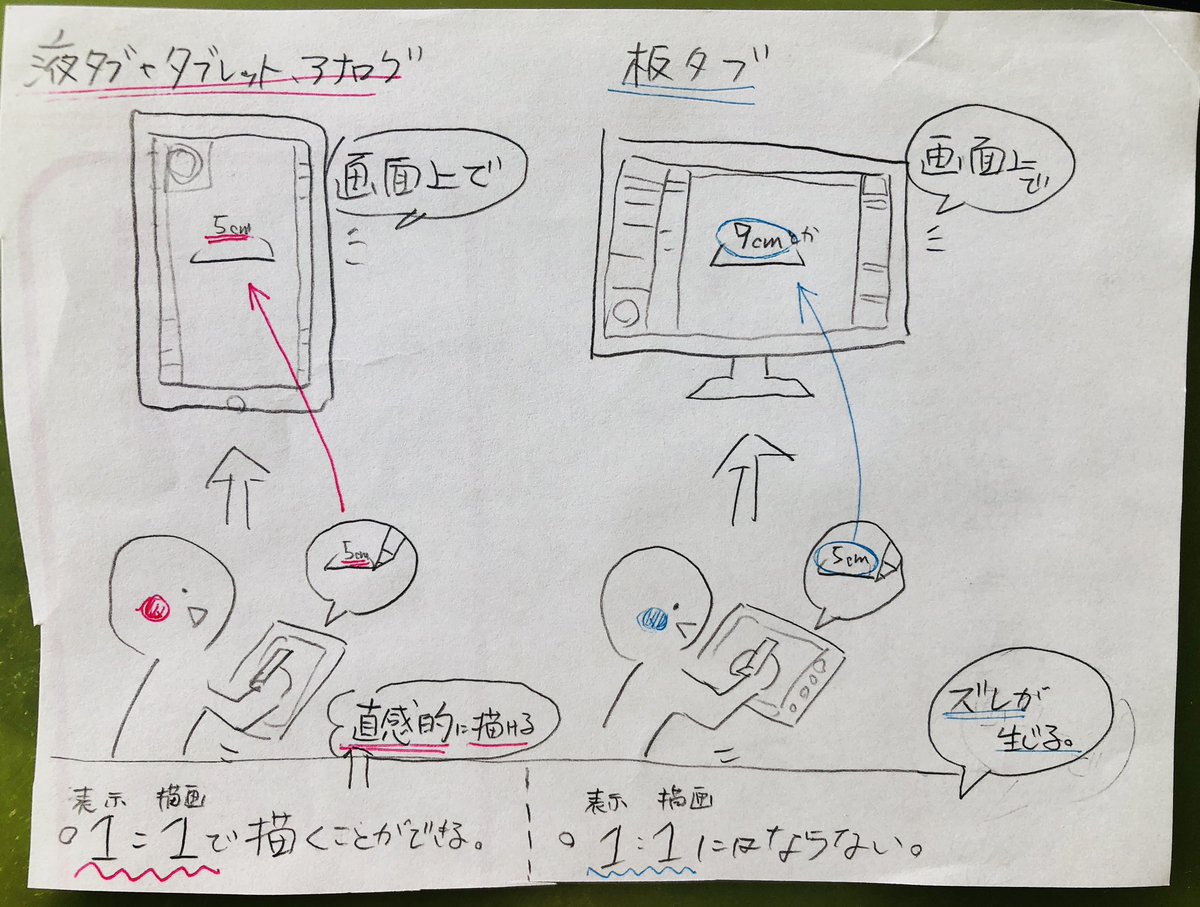 液タブやタブレット、アナログ
画面上で
5cm
5cm
直感的に描ける
表示 描画
○1:1で描くことができる。
板タブ
画面上で
9cmとか
5cm
ズレが
生じる。
表示 描画
○1:1にはならない。